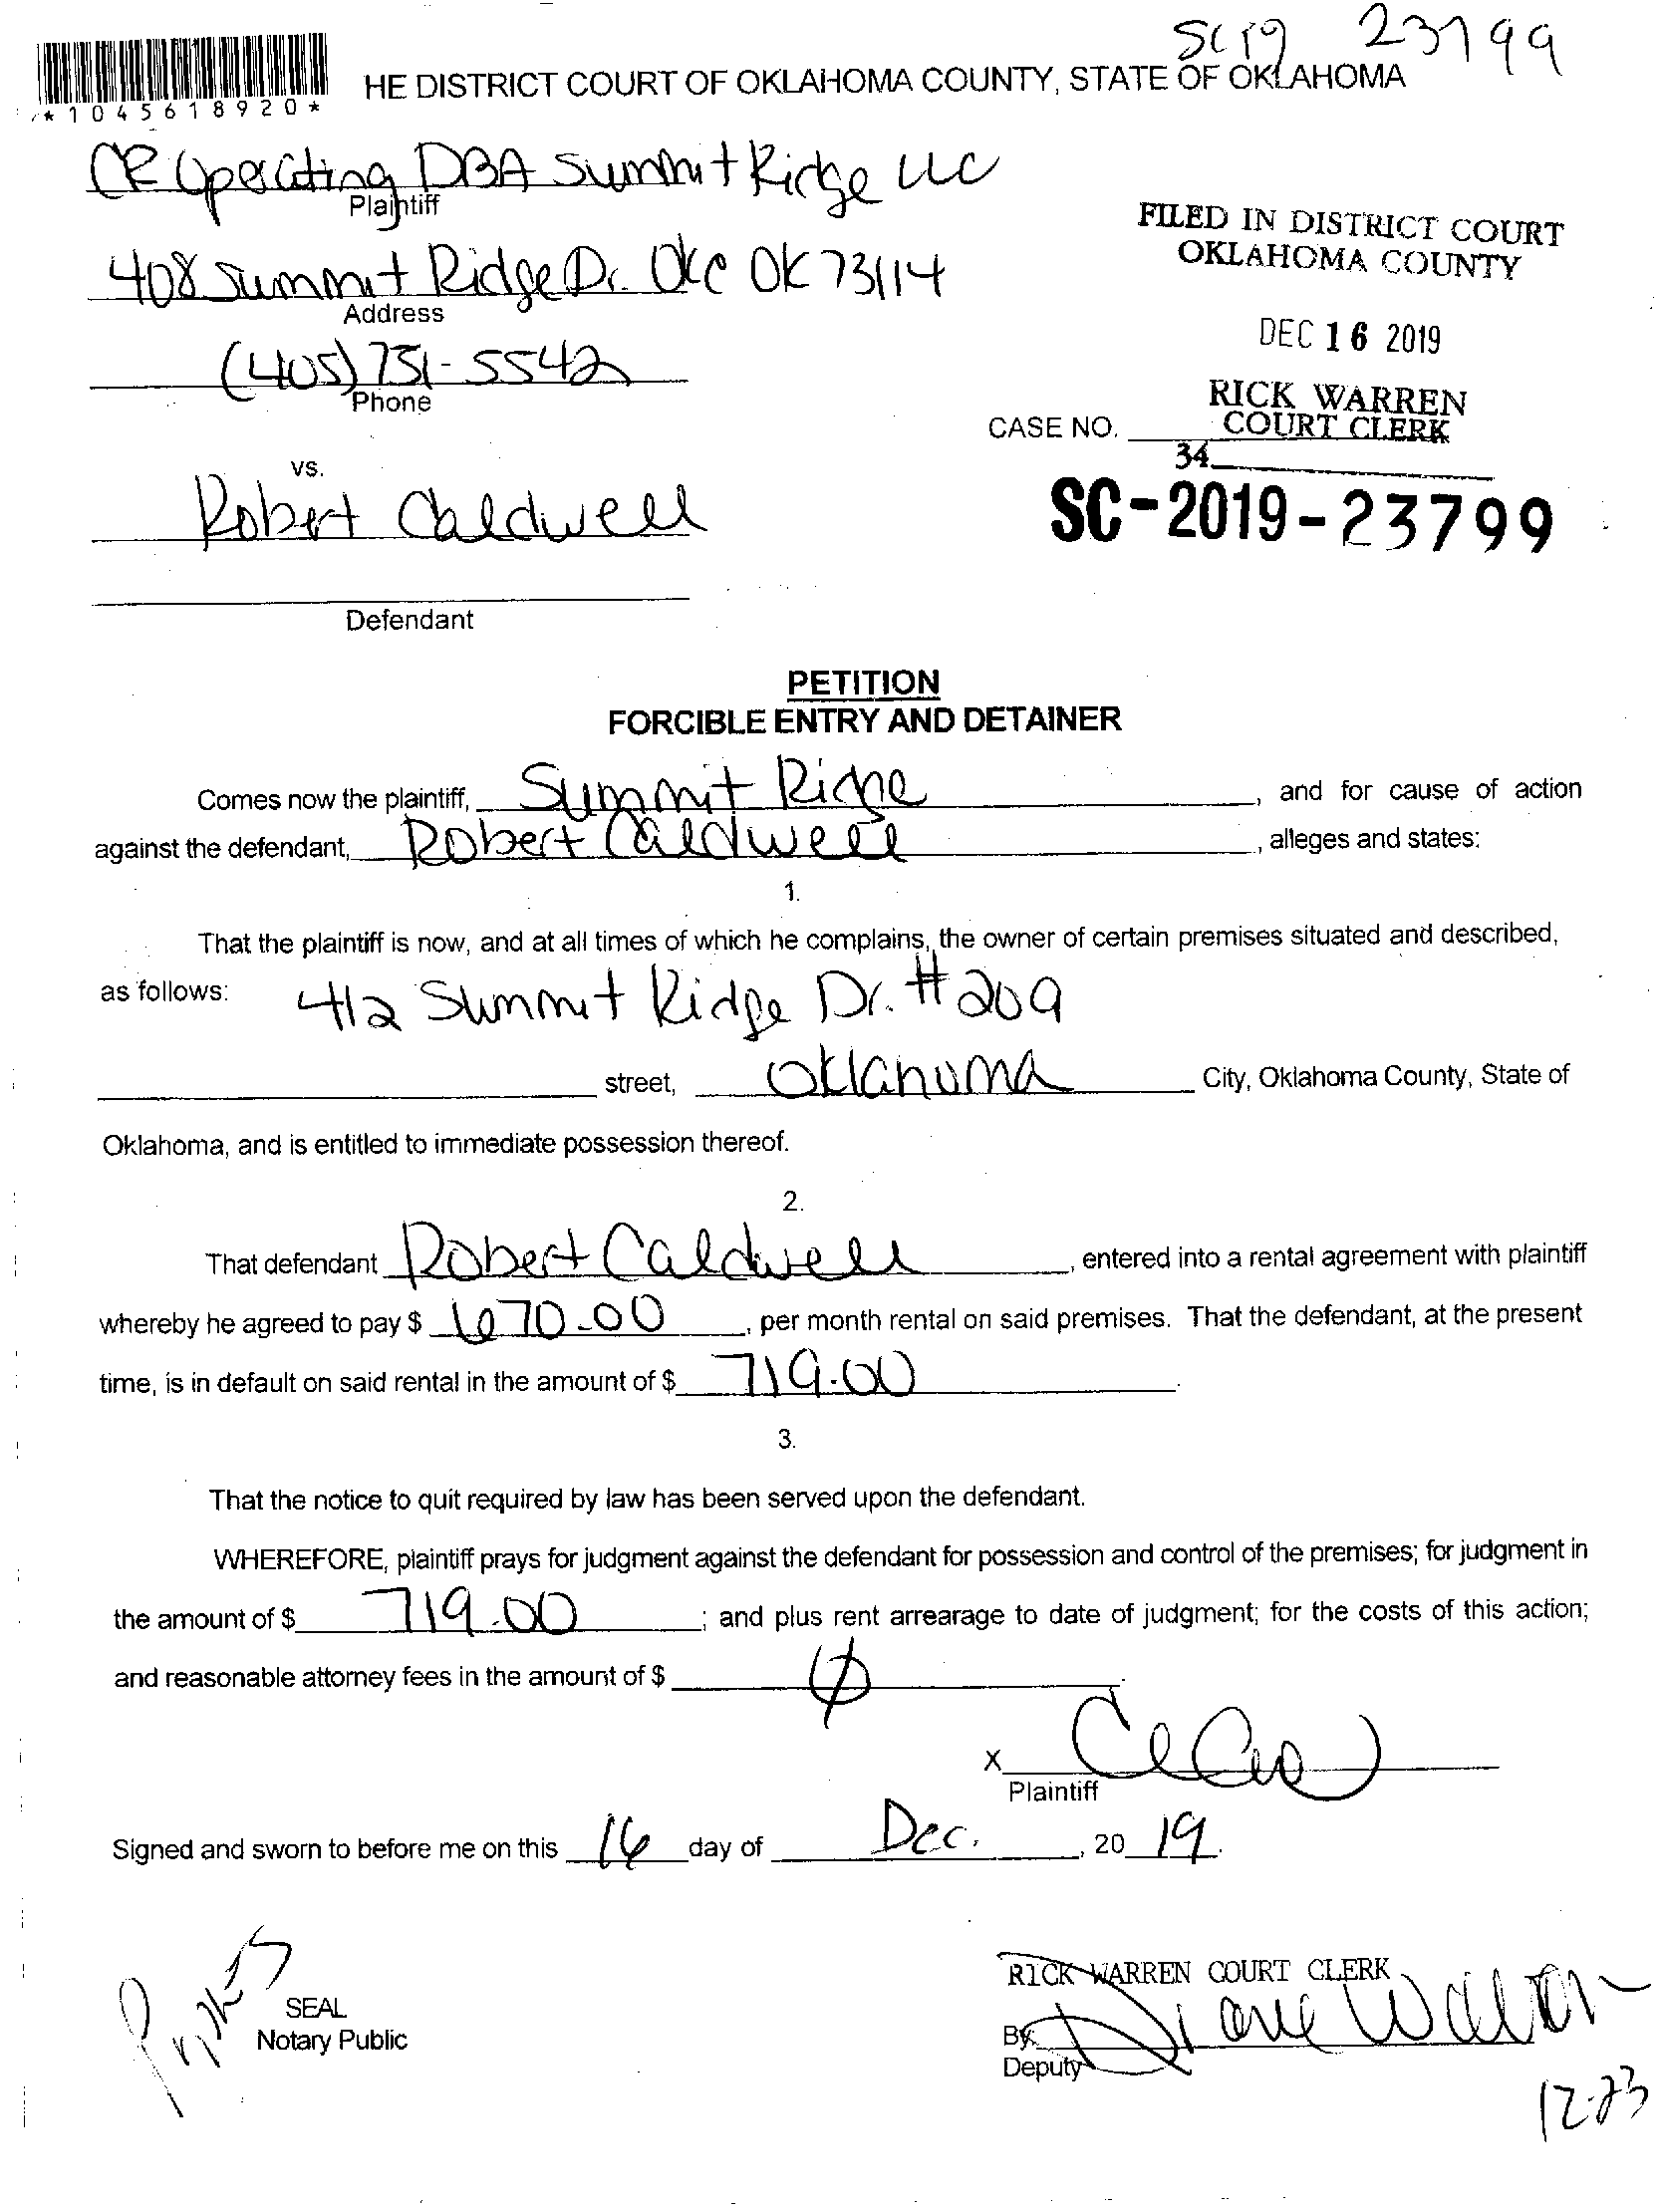 SC 19 23799
HE DISTRICT COURT OF OKLAHOMA COUNTY, STATE OF OKLAHOMA
*1045618920*
CR Operating DBA Summit Ridge LLC
Plaintiff
FILED IN DISTRICT COURT
OKLAHOMA COUNTY
408 Summit Ridge Dr. OKC OK 73114
Address
DEC 16 2019
(405) 751-5542
Phone
RICK WARREN
COURT CLERK
CASE NO.
34
vs.
Robert Caldwell
SC-2019-23799
Defendant
PETITION
FORCIBLE ENTRY AND DETAINER
Comes now the plaintiff, Summit Ridge, and for cause of action
against the defendant, Robert Caldwell, alleges and states:
1.
That the plaintiff is now, and at all times of which he complains, the owner of certain premises situated and described,
as follows: 412 Summit Ridge Dr. #209
street, Oklahoma City, Oklahoma County, State of
Oklahoma, and is entitled to immediate possession thereof.
2.
That defendant Robert Caldwell, entered into a rental agreement with plaintiff
whereby he agreed to pay $ 670.00, per month rental on said premises. That the defendant, at the present
time, is in default on said rental in the amount of $ 719.00.
3.
That the notice to quit required by law has been served upon the defendant.
WHEREFORE, plaintiff prays for judgment against the defendant for possession and control of the premises; for judgment in
the amount of $ 719.00; and plus rent arrearage to date of judgment; for the costs of this action;
and reasonable attorney fees in the amount of $ Ø.
X
Plaintiff
Signed and sworn to before me on this 16 day of Dec., 2019.
RICK WARREN COURT CLERK
SEAL
Notary Public
By: Diane
Deputy
12-23